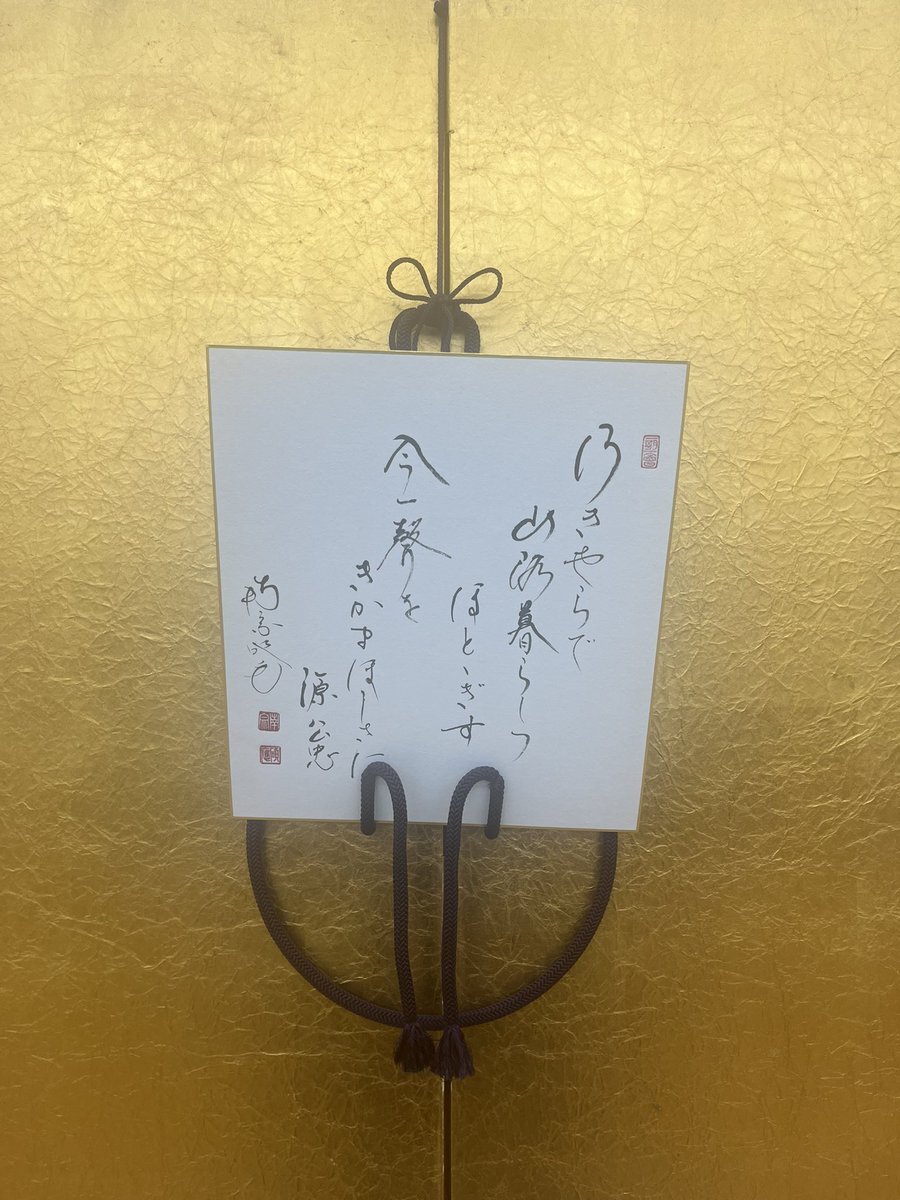 行きやらで
山路暮らしつ
ほとゝぎす
今一聲を
きかまほしさに
源公忠